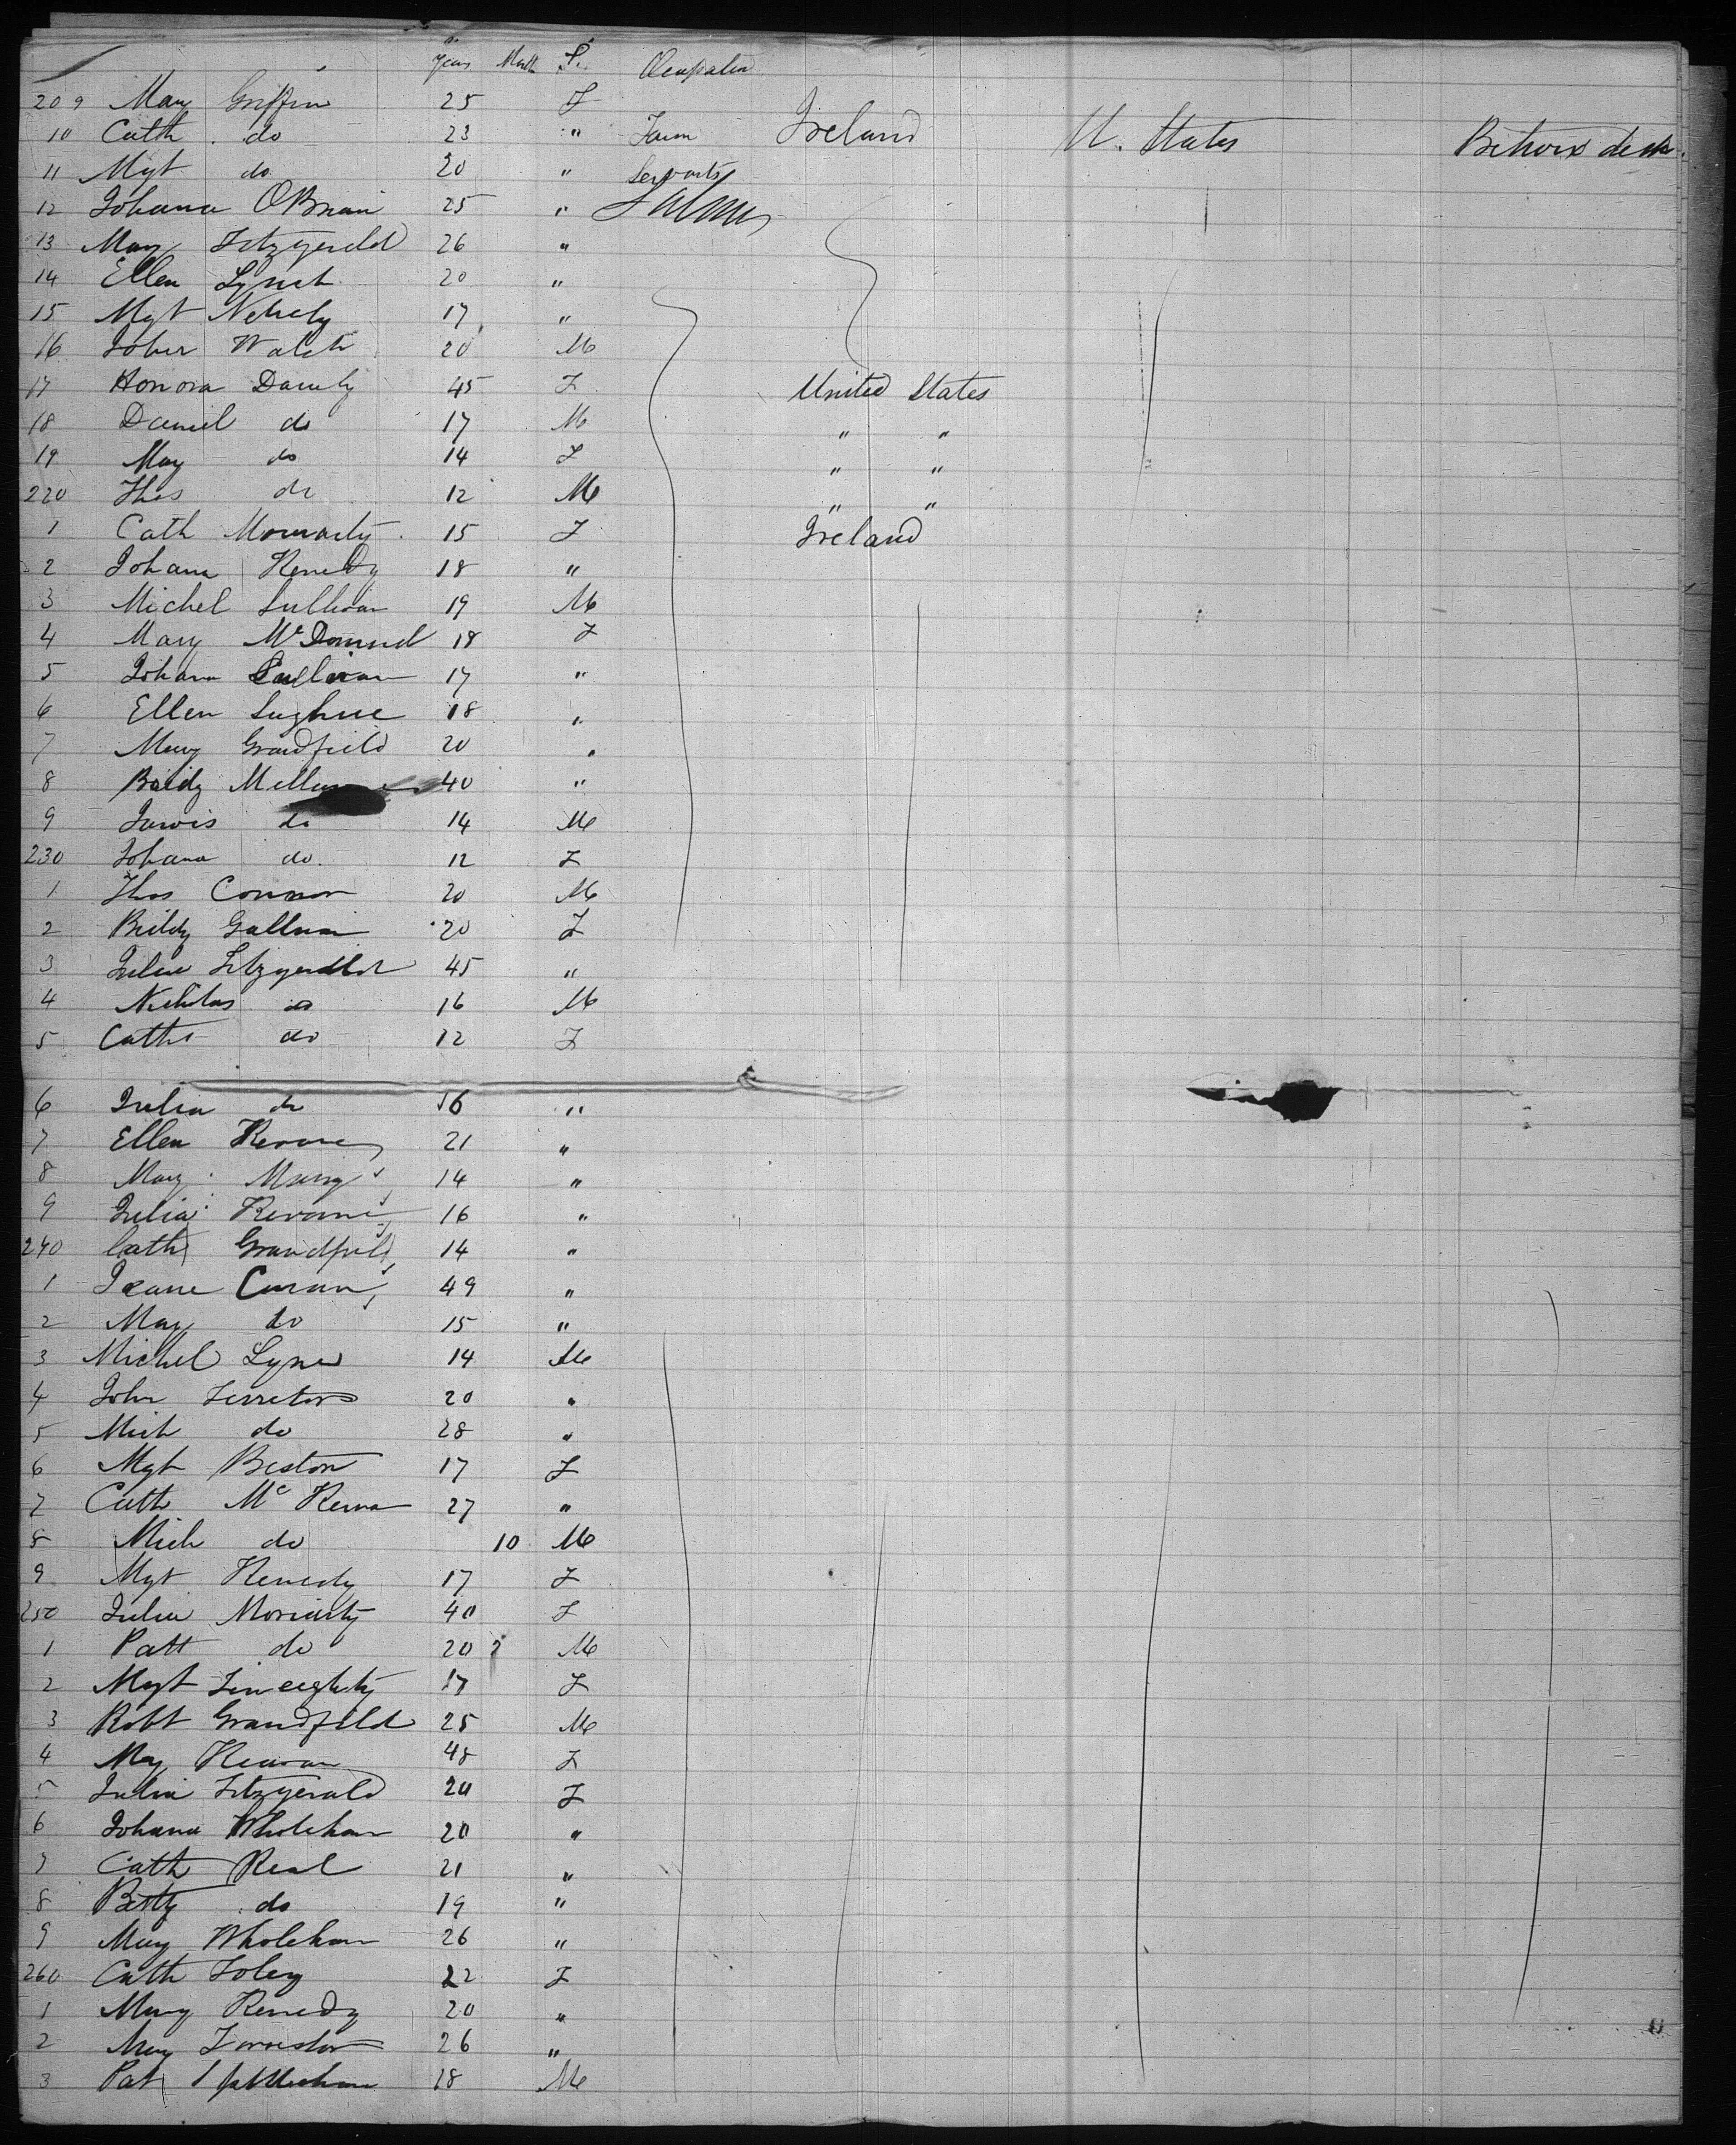 Years Month S. Ocupation
209 Mary Griffin 25 F
10 Cath do 23 " Farm Ireland U. States Betwix deck
11 Mgt do 20 " Servants
12 Johana OBrian 25 "
13 Mary Fitzgerald 26 "
14 Ellen Lynch 20 "
15 Mgt 17 "
16 John Walsh 20 M
17 Honora 45 F United States
18 Daniel do 17 M " "
19 May do 14 F " "
220 Thos do 12 M " "
1 Cath Moriarty 15 F Ireland
2 Johana Kenedy 18 "
3 Michel Sullivan 19 M
4 Mary 18 F
5 Johana Sullivan 17 "
6 Ellen Sughrue 18 "
7 Mary Grandfield 20 "
8 Biddy 40 "
9 do 14 M
230 Johana do 12 F
1 Thos Connor 20 M
2 Biddy 20 F
3 Julia Fitzgerald 45 "
4 Nicholas do 16 M
5 Cath do 12 F
6 Julia do 16 "
7 Ellen 21 "
8 Mary 14 "
9 Julia 16 "
240 Cath Grandfild 14 "
1 Jeane Curan 49 "
2 May do 15 "
3 Michel Lyne 14 M
4 John 20 "
5 Mich do 28 "
6 Mgt Beston 17 F
7 Cath 27 "
8 Mich do 10 M
9 Mgt Kenedy 17 F
250 Julia Moriarty 40 F
1 Patt do 20 M
2 Mgt 17 F
3 Robt Grandfild 25 M
4 My 48 F
5 Julia Fitzgerald 20 F
6 Johana Wholehan 20 "
7 Cath Real 21 "
8 Betty do 19 "
9 Mary Wholehan 26 "
260 Cath Foley 22 F
1 Mary Kenedy 20 "
2 May 26 "
3 Pat 18 M